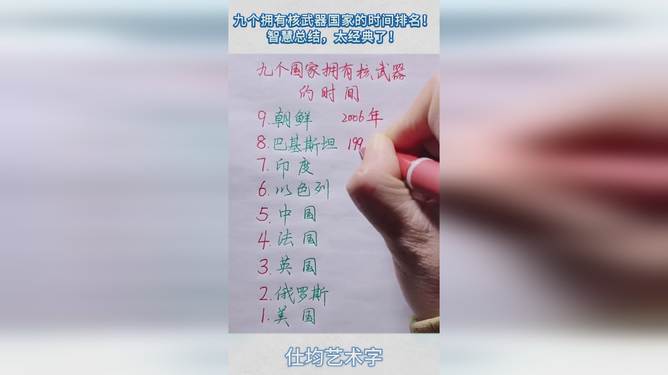 九个拥有核武器国家的时间排名！
智慧总结，太经典了！
九个国家拥有核武器
的时间
9.朝鲜 2006年
8.巴基斯坦 199
7.印度
6.以色列
5.中国
4.法国
3.英国
2.俄罗斯
1.美国
仕均艺术字